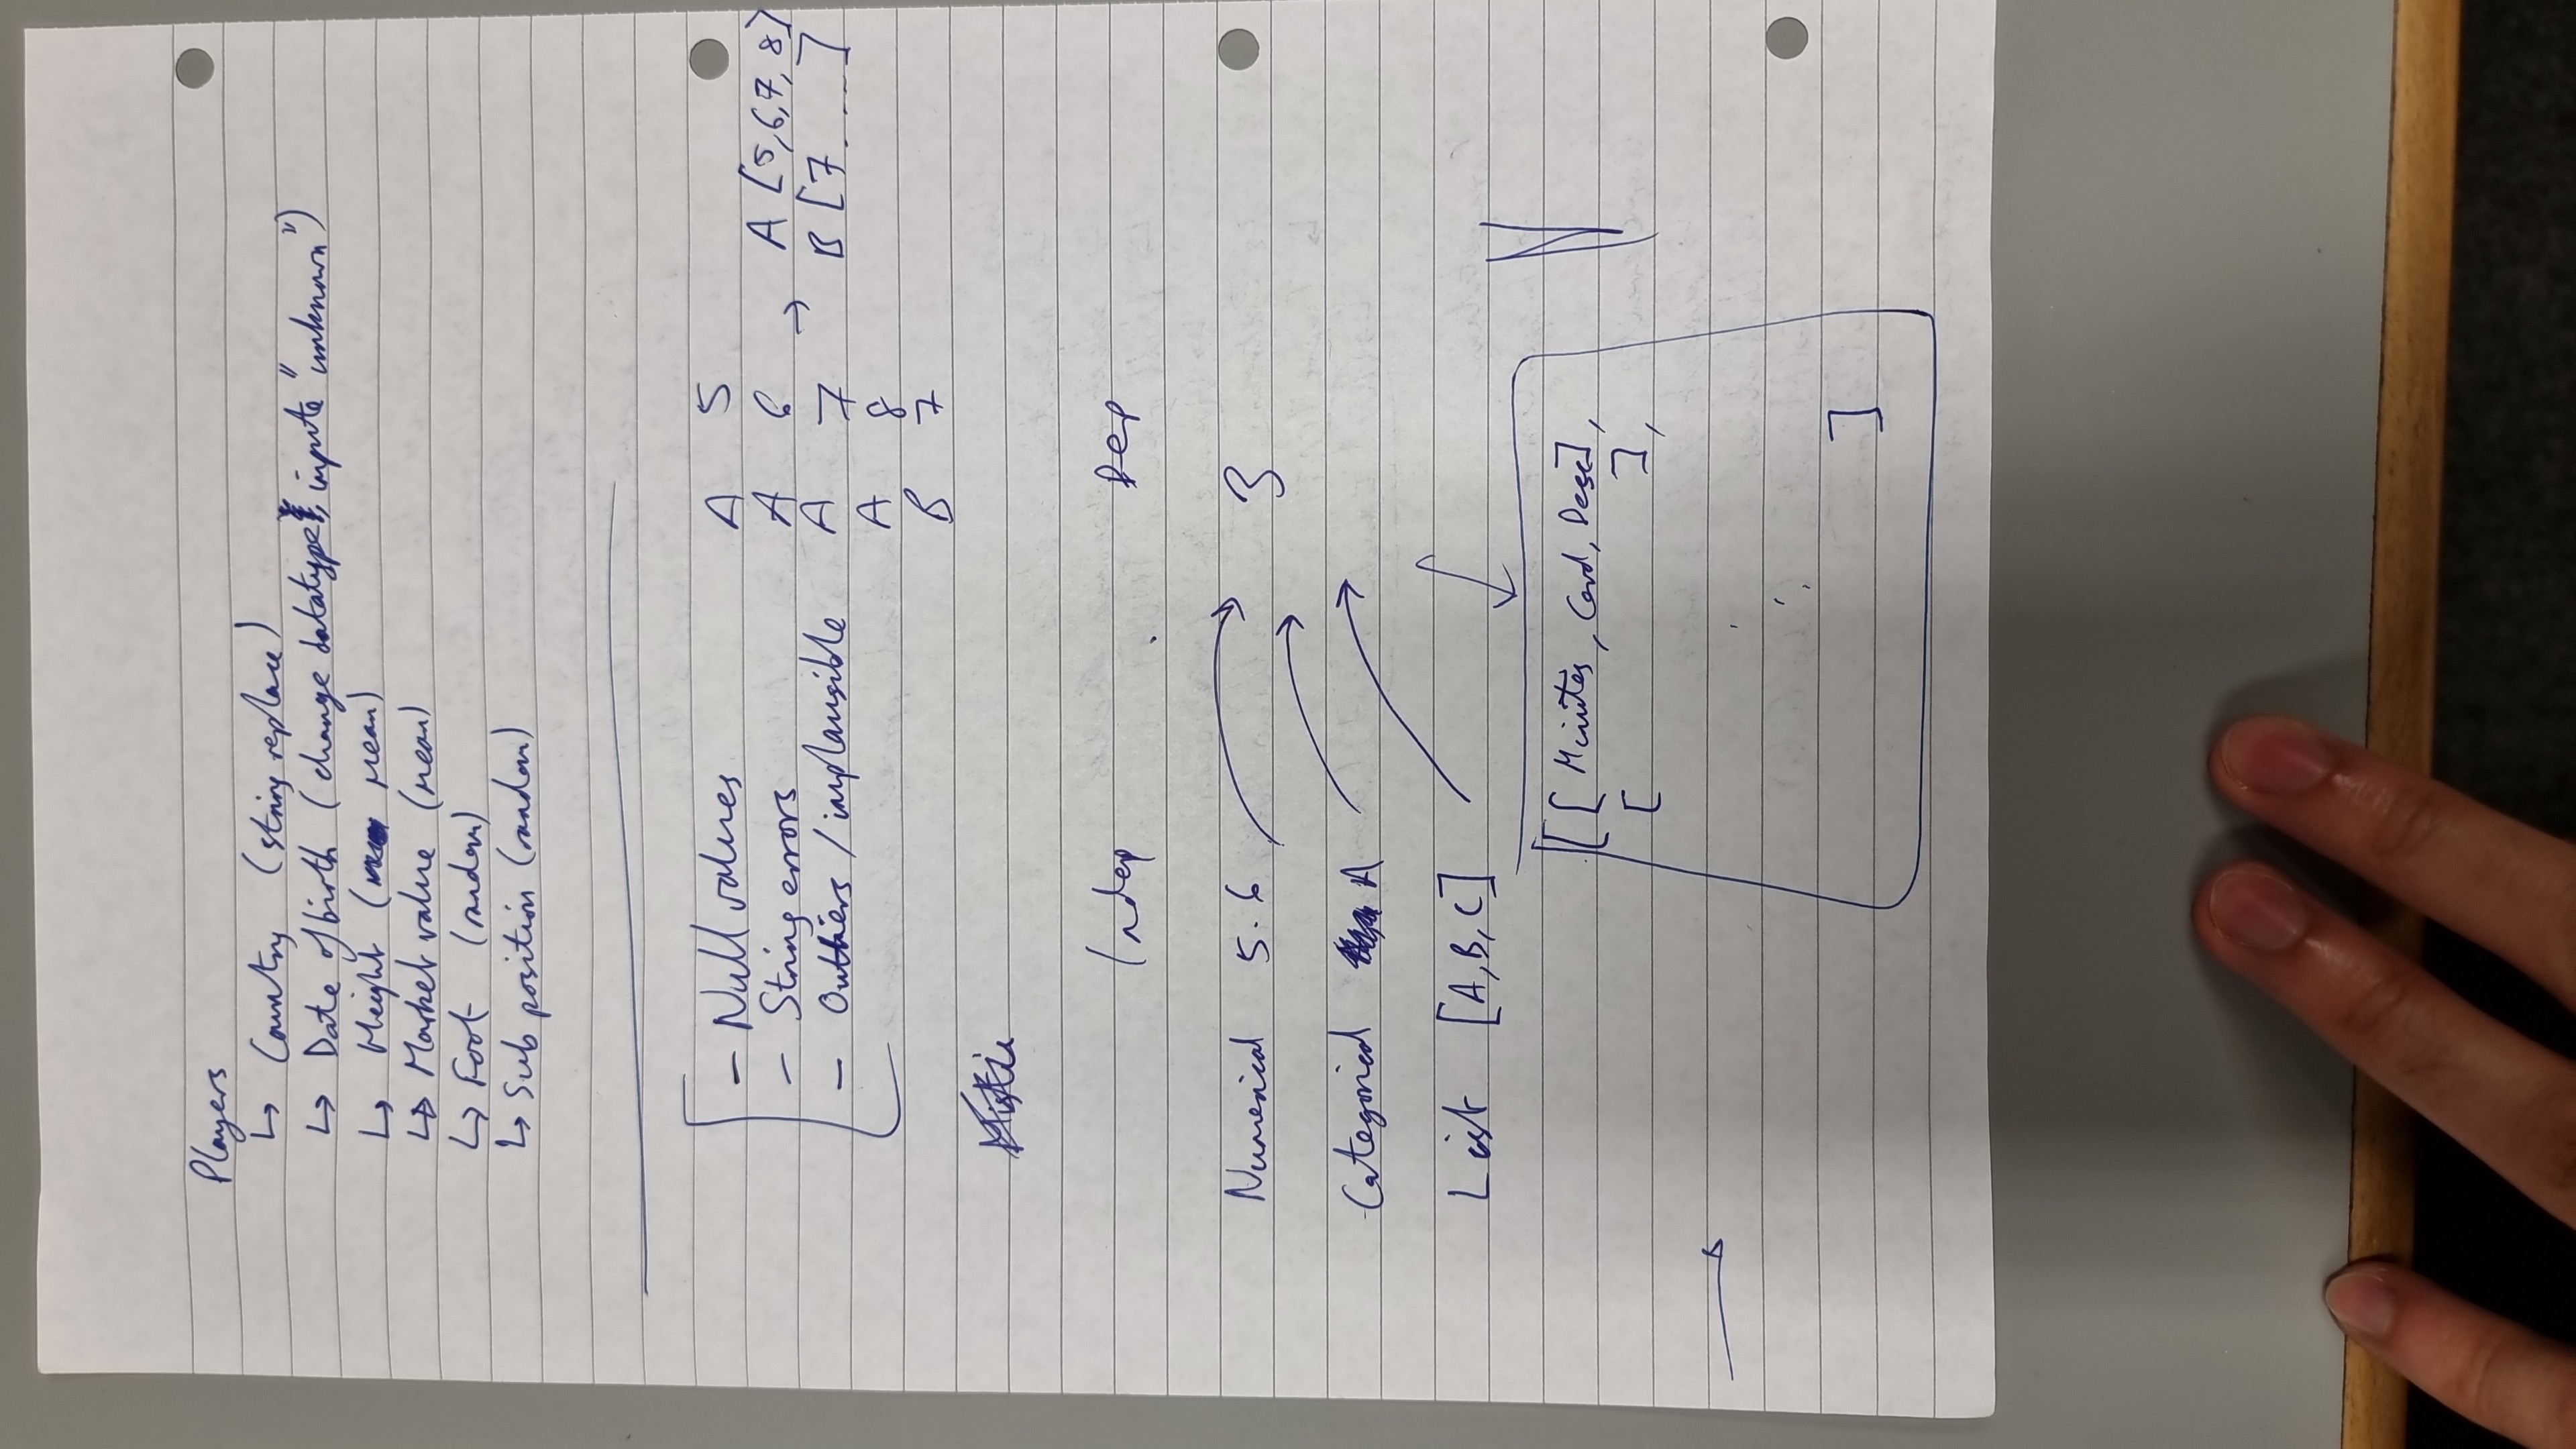 Players
↳ Country (string replace)
↳ Date of birth (change datatype, impute "unknown")
↳ Height (Mean)
↳ Market value (mean)
↳ Foot (random)
↳ Sub position (random)
- Null values A 5
- String errors A 6 → A [5,6,7,8]
- Outliers / implausible A 7 B [7 ....]
A 8
B 7
Indep Dep
Numerical 5.6 3
Categorical A
List [A,B,C]
[[Minutes, Card, Desc],
[ ],
]